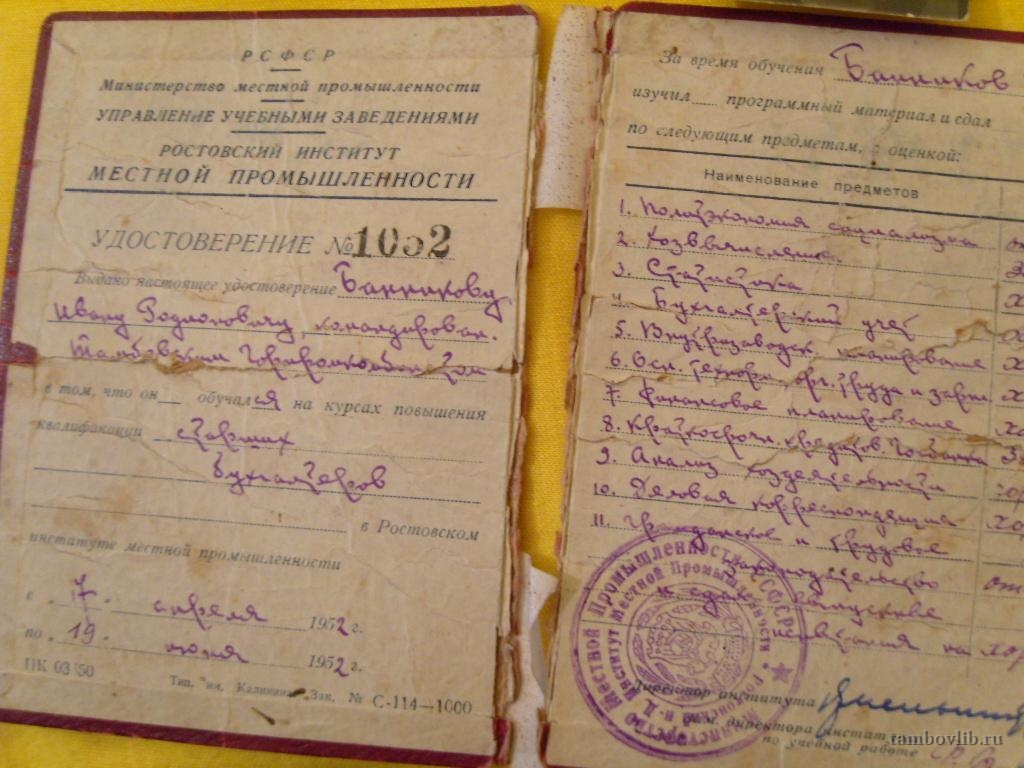 РСФСР
Министерство местной промышленности
УПРАВЛЕНИЕ УЧЕБНЫМИ ЗАВЕДЕНИЯМИ
РОСТОВСКИЙ ИНСТИТУТ
МЕСТНОЙ ПРОМЫШЛЕННОСТИ
УДОСТОВЕРЕНИЕ № 1052
Выдано настоящее удостоверение Банникову
Ивану Родионовичу, командирован.
Тамбовским Горпромкомбинатом
в том, что он обучался на курсах повышения
квалификации старших
бухгалтеров
в Ростовском
институте местной промышленности
с "7" апреля 1952 г.
по "19" июня 1952 г.
ПК 03350
Тип. "им. Калинина" Зак. № С-114—1000
За время обучения Банников
изучил программный материал и сдал
по следующим предметам, с оценкой:
Наименование предметов
1. Политэкономия социализма от
2. Хозвычисления
3. Статистика х
4. Бухгалтерский учет х
5. Внутризаводск. планирование х
6. Осн. технорм., орг. труда и зарпл. х
7. Финансовое планирование хо
8. Краткосрочн. кредитов. Госбанка
9. Анализ хоздеятельности хор
10. Деловая корреспонденция хор
11. Гражданское и трудовое
законодательство от
и сдал
на хор
Директор института
Зам. директора института
по учебной работе
Министерство Местной Промышленности РСФСР
Ростовский н-Д. Институт Местной Промышленности
tambovlib.ru